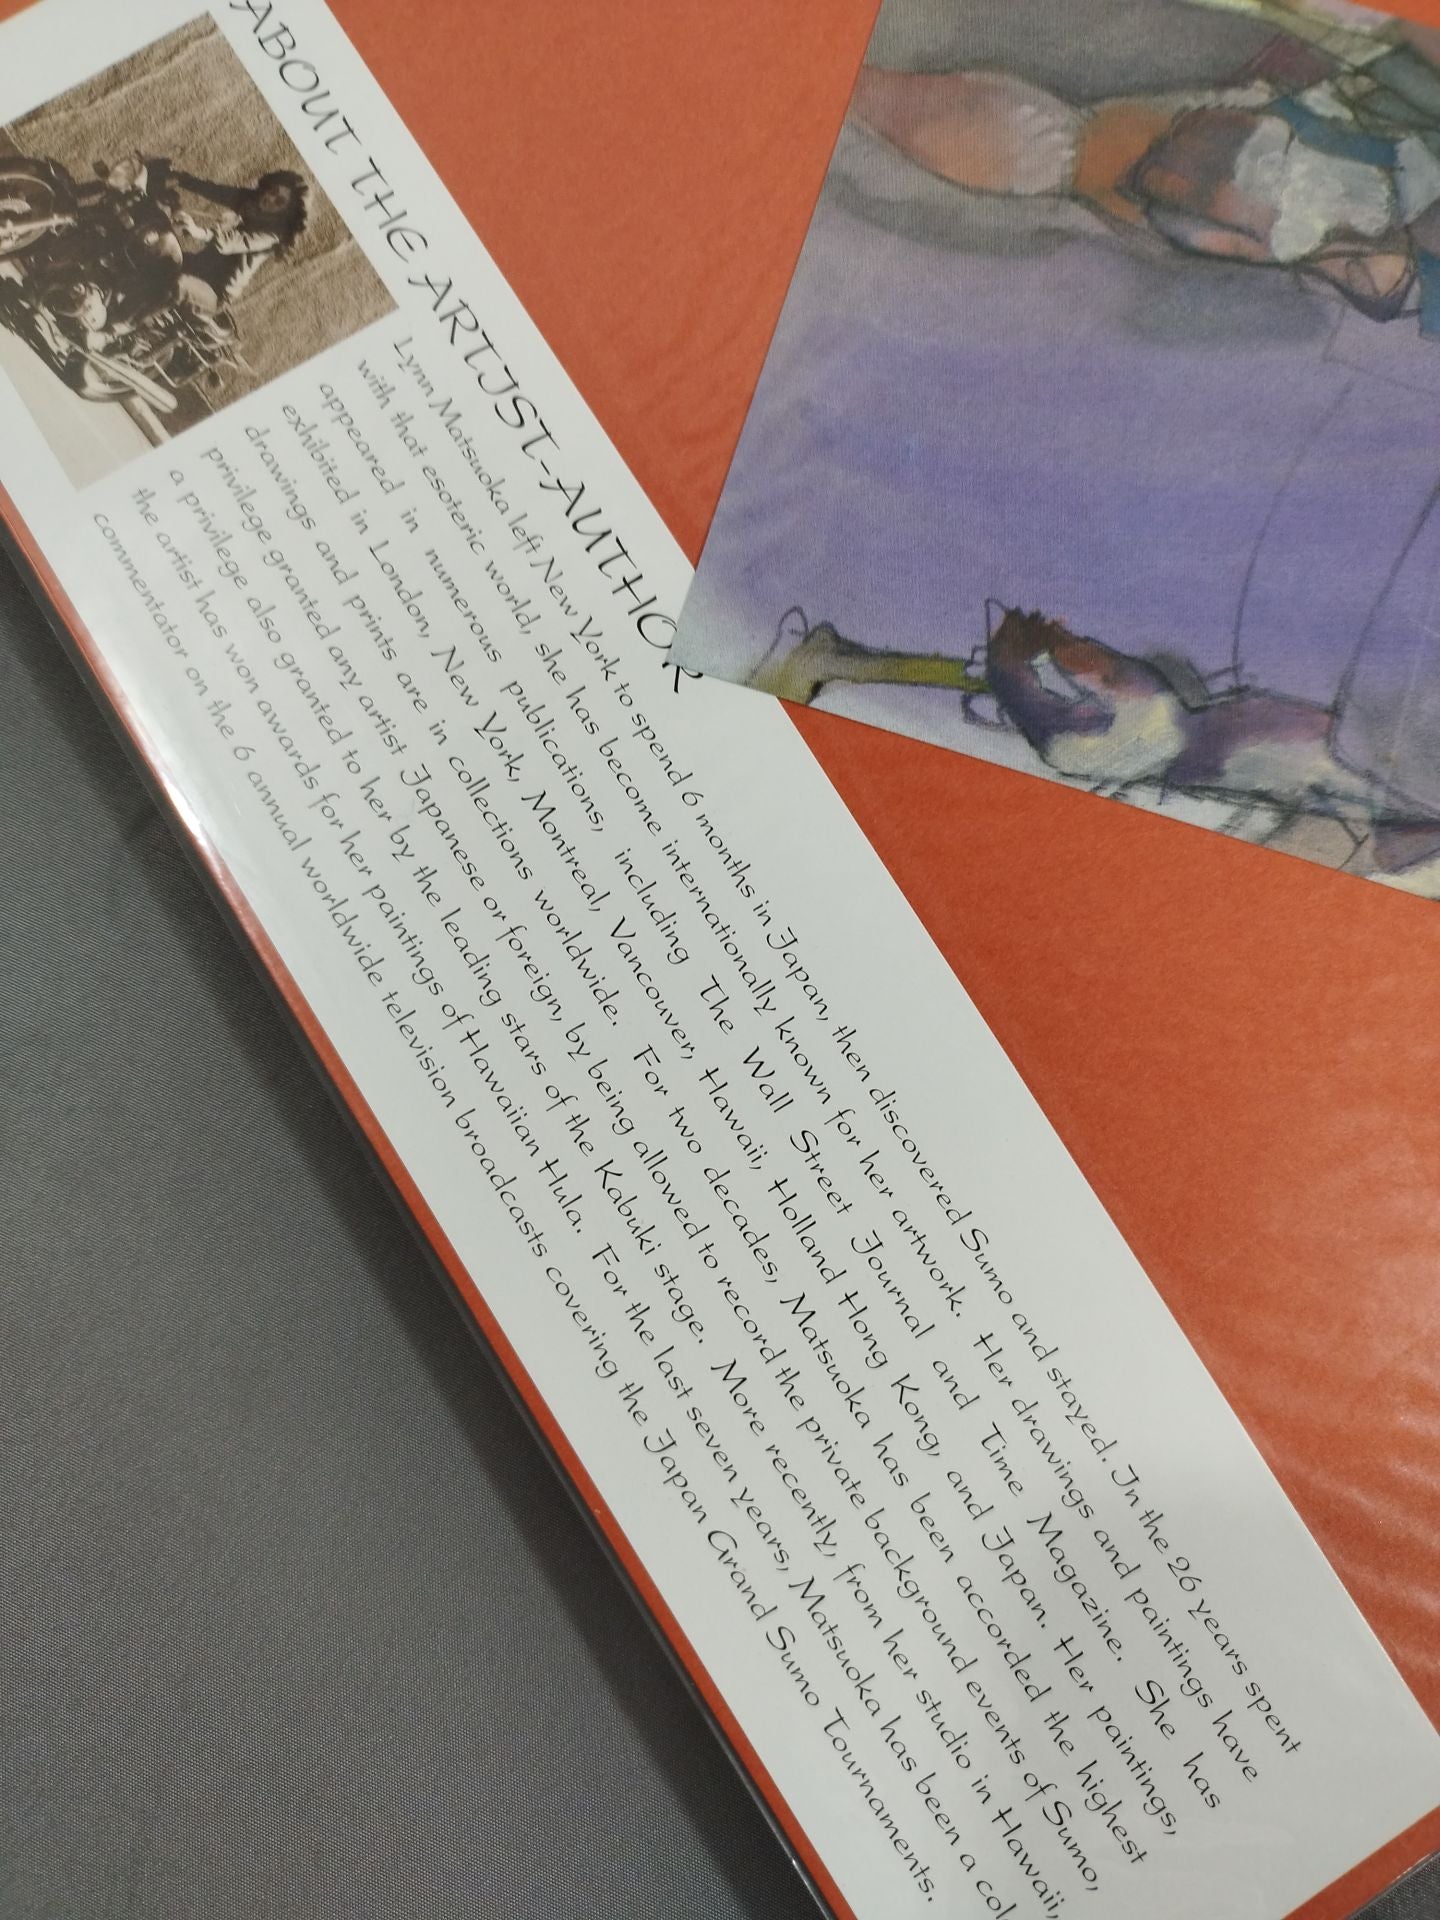 ABOUT THE ARTIST-AUTHOR
Lynn Matsuoka left New York to spend 6 months in Japan, then discovered Sumo and stayed. In the 26 years spent
with that esoteric world, she has become internationally known for her artwork. Her drawings and paintings have
appeared in numerous publications, including The Wall Street Journal and Time Magazine. She has
exhibited in London, New York, Montreal, Vancouver, Hawaii, Holland Hong Kong, and Japan. Her paintings,
drawings and prints are in collections worldwide. For two decades, Matsuoka has been accorded the highest
privilege granted any artist Japanese or foreign, by being allowed to record the private background events of Sumo,
a privilege also granted to her by the leading stars of the Kabuki stage. More recently, from her studio in Hawaii,
the artist has won awards for her paintings of Hawaiian Hula. For the last seven years, Matsuoka has been a col
commentator on the 6 annual worldwide television broadcasts covering the Japan Grand Sumo Tournaments.